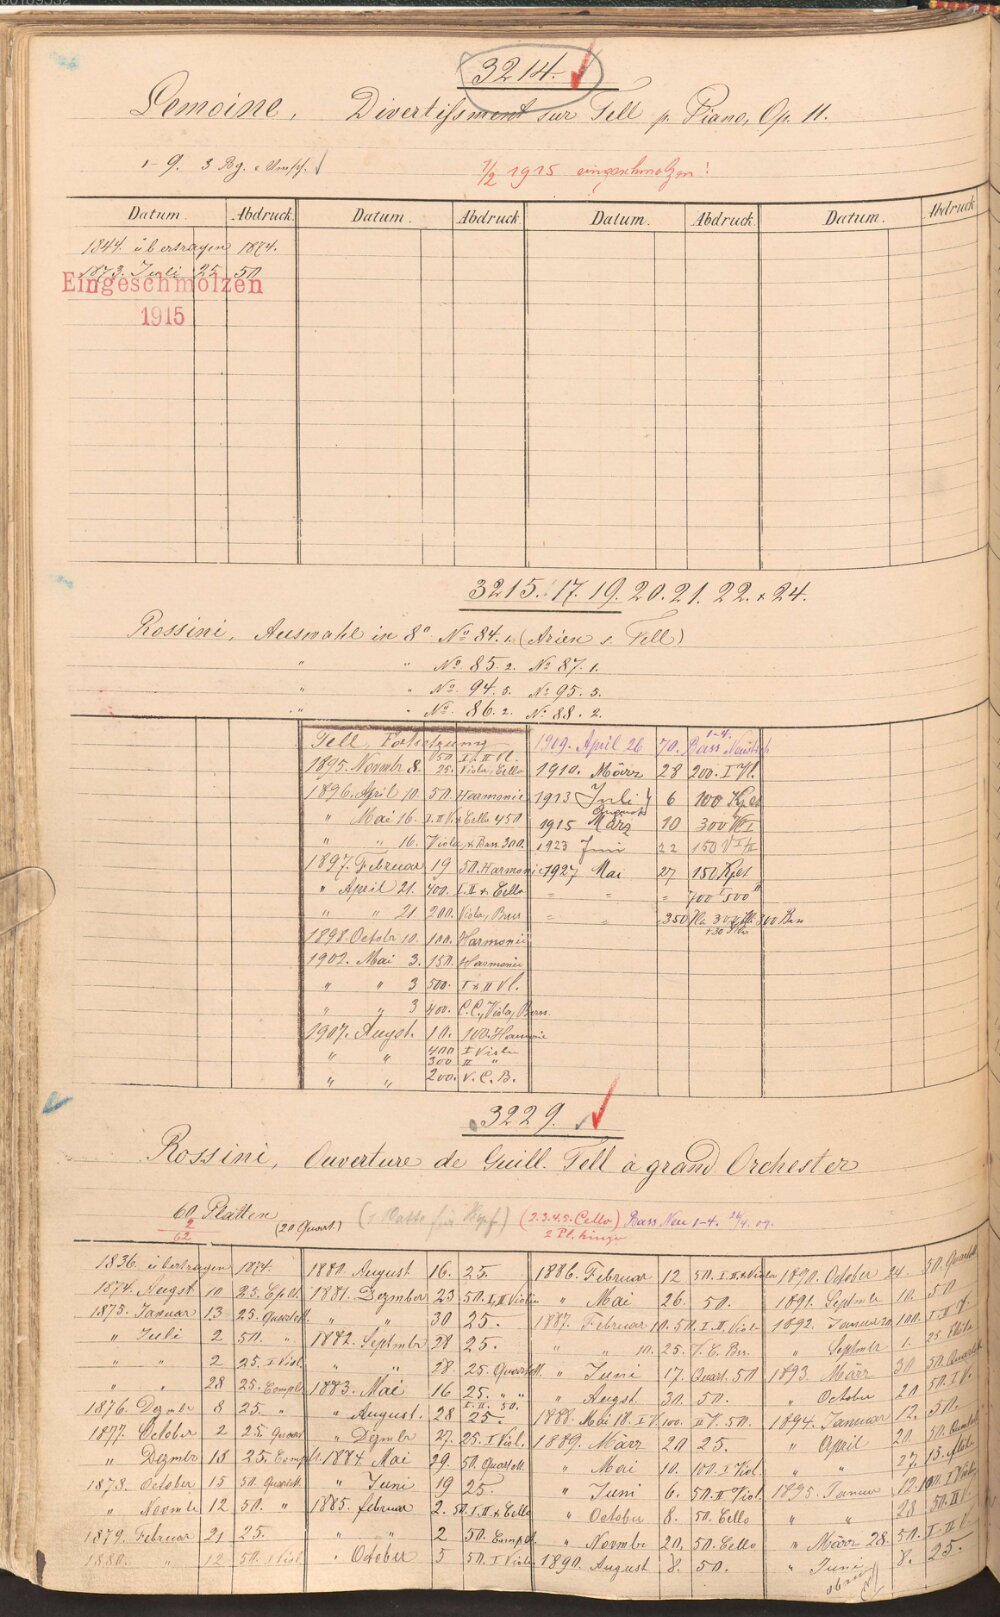 3214.
Lemoine, Divertissment sur Tell p. Piano, Op. 11.
1-9. 3 Bg. Umschl.
1/2 1915 eingeschmolzen!
Datum. Abdruck. Datum. Abdruck Datum. Abdruck Datum. Abdruck
1844. übertragen 1874.
1873. Juli 25 50
Eingeschmolzen
1915
3215. 17. 19. 20. 21. 22. + 24.
Rossini, Auswahl in 8° No 84. 1. (Arien s. Tell)
" " No. 85. 2. No 87. 1.
" " No. 94. 5. No 95. 5.
" " No. 86. 2. No 88. 2.
Tell, Fortsetzung
1895. Novmbr 8. 150 I. II Vl.
25. Viola, Cello
1896. April 10. 50. Harmonie
" Mai 16. I. II V. & Cello 450
" " 16. Viola & Bass 300.
1897. Februar 19 50. Harmonie
" April 21. 400. I. II & Cello
" " 21 200. Viola, Bass
1898. Octobr 10. 100. Harmonie
1902. Mai 3. 150. Harmonie
" " 3 500. I & II Vl.
" " 3 400. C.C., Viola, Bass.
1907. Augst. 10. 100. Harmonie
" " 400 I Violin
300 II "
" " 200. V. C. B.
1909. April 26 70. Bass Neustich
1-4.
1910. März 28 200. I Vl.
1913 Juli 6 100 Kplt
1915 März 10 300 V I
1923 Juni 22 150 V I/II
1927 Mai 27 150 Kplt
3229.
Rossini, Ouverture de Guill. Tell à grand Orchester
60 Platten (20 Quart.)
2
62
(2.3.4.5. Cello) Bass Neu 1-4. 26/4. 09.
2 Pl. hinzu
1836. übertragen 1874. 1880. August 16. 25. 1886. Februar 12 50. I. II & Viola 1890. October 24. 50. Quartett
1874. Augst 10 25. Cplt. 1881. Dezmber 23 50. I. II Violin " Mai 26. 50. 1891. Septmbr 10. 50
1875. Januar 13 25. Quartett " " 30 25. 1887. Februar 10. 50. I. II. Viol. 1892. Januar 20 100. I. II V.
" Juli 2 50. " 1882. Septmbr 28 25. " " 10. 25. V. C. Bss. " Septmbr 1. 25. Viola
" " 2 25. I Viol. " " 28 25. Quartett " Juni 17. Quart. 50 1893. März 30 50. Quartett
" " 28 25. Compl. 1883. Mai 16 25. " " " Augst 30. 50. " October 20 50. I V.
1876. Dezmbr 8 25. " " August. 28 25. I. II. 50. 1888. Mai 18. I V. 100. II V. 50. 1894. Januar 12. 50.
1877. October 2 25. Quart " Dezmbr 27. 25. I Viol. 1889. März 20 25. " April 20 50. Quartett
" Dezmbr 13 25. Compl. 1884. Mai 29. 50. Quartett. " Mai 10. 100. I Viol. " " 27. 15.
1878. October 15 50. Quartett " Juni 19 25. " Juni 6. 50. II Viol. 1895. Januar 12. 100. I Viol.
" Novmbr 12 50. " 1885. februar 2. 50. I. II & Cello " October 8. 50. Cello " " 28 50. II V.
1879. Februar 21 25. " " 2 50. Compl. " Novmbr 20. 50. Cello " März 28. 50. I. II V.
1880. " 12 50. I Viol. " October 5 50. I Viol. 1890. August 8. 50. " Juni 8. 25.
oben